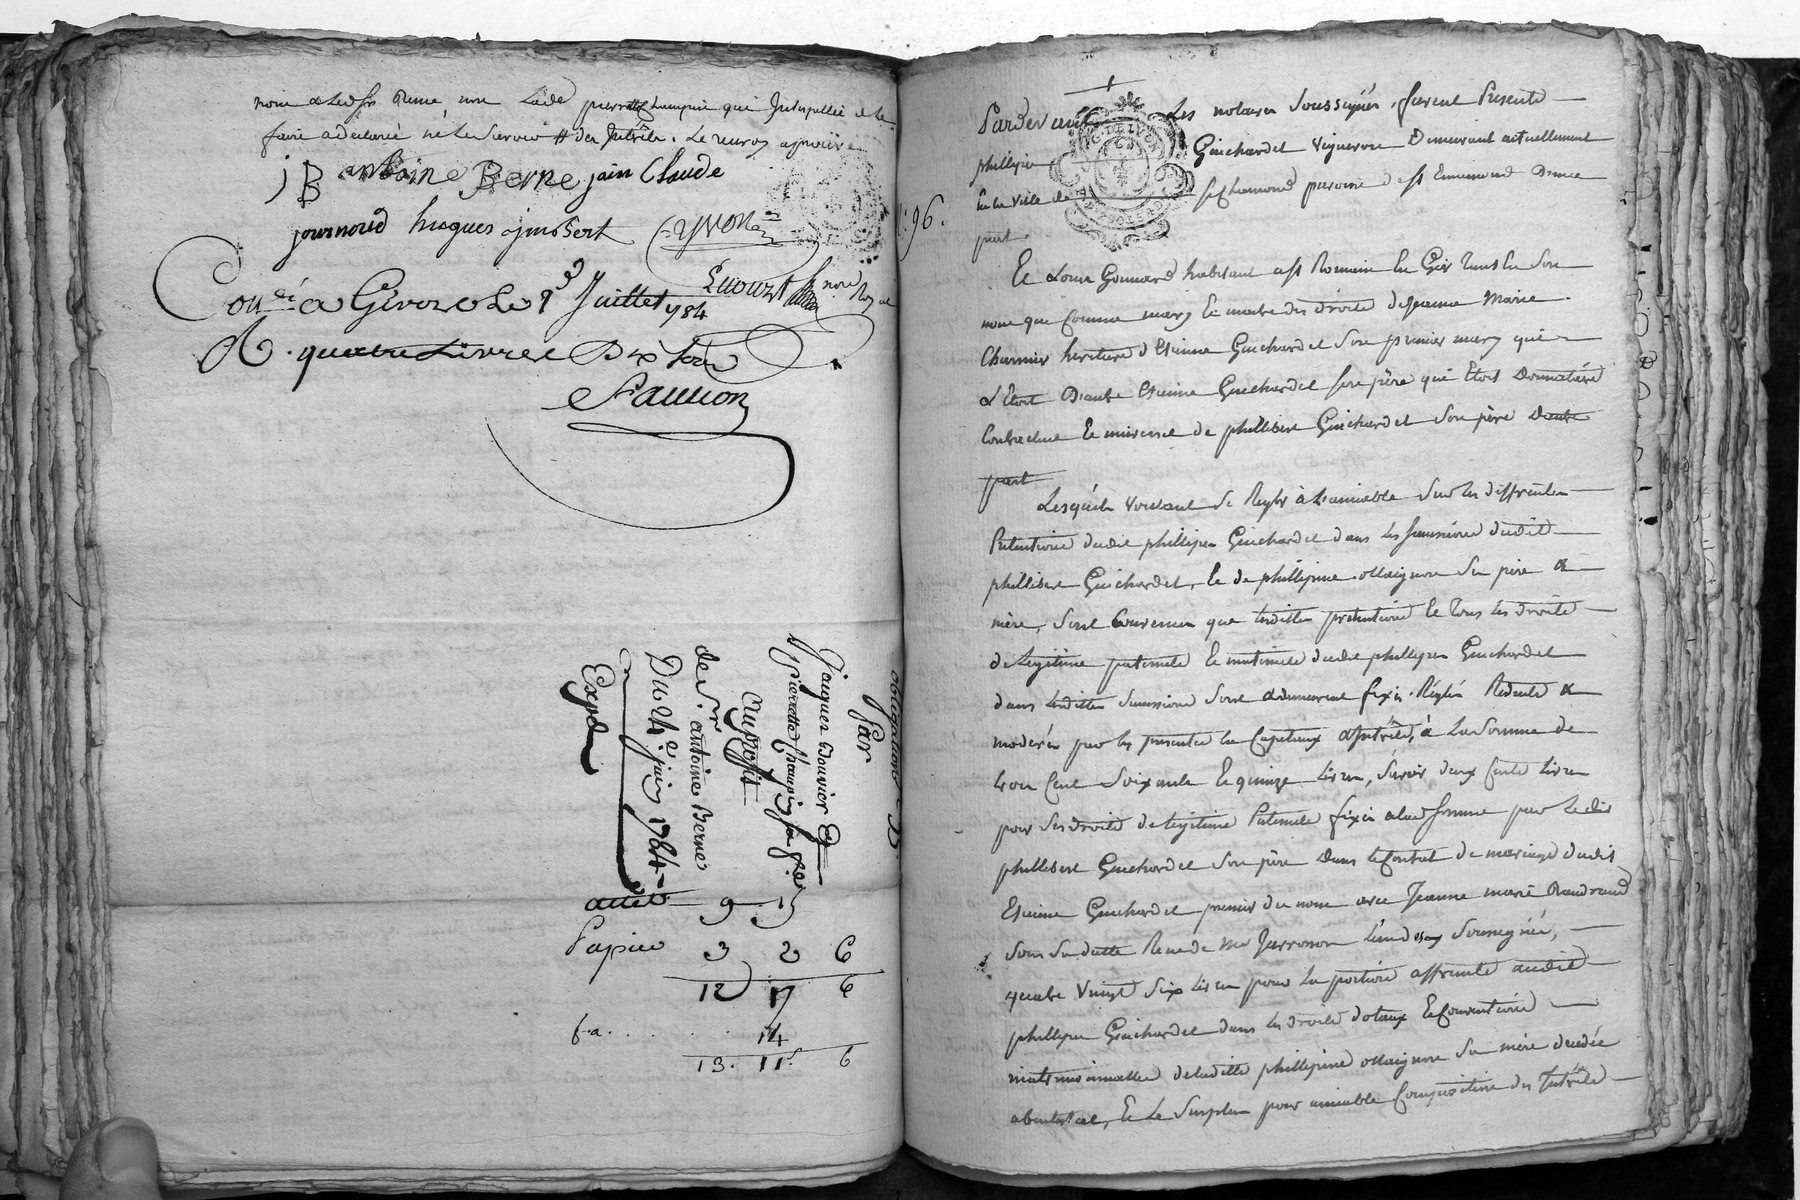 non led. Sr Berne, non ladé pierrette Champin qui Interpellée de le
faire a declaré ne le Savoir # des Intérêts. Le renvoy aprouvé
j B antoine Berne jain Claude
journoud hugues joubert Yvon
Con.lé a Givors Le 1 Juillet 1784
R. quatre Livres Dix Sols
Fauuon
obligation
Par
Jacques Bouvier &
pierrette Champin sa f.e
Au profit
de Sr. antoine Berne
Du 24.e juin 1784
Expd.
acte 9 15
Papier 3 2 6
12 17 6
f.a. 14
13. 11.s 6
96.
G. DE LYON
Pardevant Les notaires Soussignés, furent Presents
phillipe Guichardet Vigneron Demeurant actuellement
En la Ville de St chamond paroisse de St Ennemond D'une
part.
Et Louis Gonnard habitant a St Romain En Gier tant En Son
nom que Comme mary Et maitre des droits de Jeanne Marie
Charmier heritiere d'Etienne Guichardet Son premier mary qui
L'etoit D'autre Etienne Guichardet Son père qui Etoit Donnataire
Contractuel Et universel de phillibert Guichardet Son père D'autre
part
Lesquels voulant Se Regler à L'amiable Sur les differentes
Pretentions dudit phillipe Guichardet dans les Successions dudit
phillibert Guichardet, Et de phillipine ollaignon Ses père &
mère, Sont Convenus que lesdittes pretentions Et tous les droits
de Legitime paternels Et maternels dudit phillipe Guichardet
dans lesdittes Successions Sont & demeurent fixés, Réglés Reduits &
moderés par les presentes En Capitaux & Intérêts, à La Somme de
trois Cent Soixante Et quinze Livres, Savoir deux Cents Livres
pour Ses droits de Legitime Paternels fixés a lad. Somme par Ledit
phillibert Guichardet Son père Dans le Contrat de mariage dudit
Etienne Guichardet premier du nom avec Jeanne marie
Sous Sa datte Recu de Me Jarrosson L'un des Soussignés,
quatre vingt Six Livres pour La portion afferente audit
phillipe Guichardet dans les droits dotaux Et Conventions
matrimonialles de laditte phillipine ollaignon Sa mère decedée
abintestat, Et Le Surplus pour amiable Composition des Intérêts